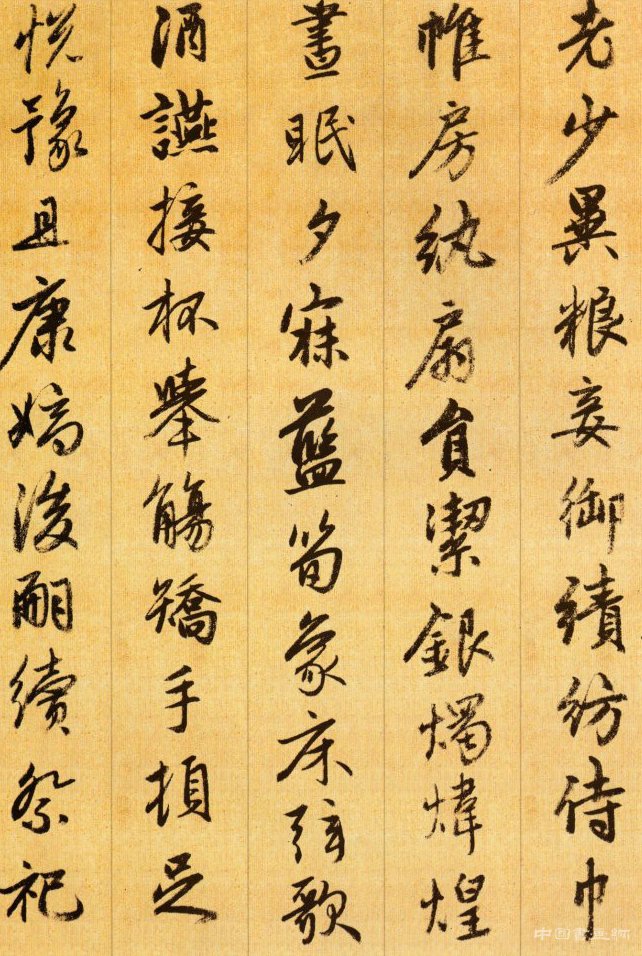 老少異粮妾御績紡侍巾
帷房紈扇員潔銀燭煒煌
晝眠夕寐藍筍象床弦歌
酒讌接杯舉觴矯手頓足
悅豫且康嫡後嗣續祭祀
中国书画网